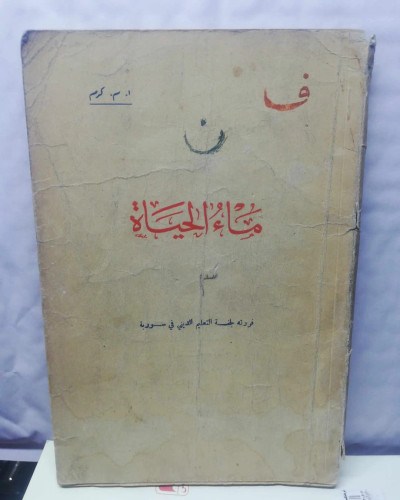 ف
ا. م. كرم
ن
ماءُ الحياة
قررته لجنة التعليم الديني في سوريا